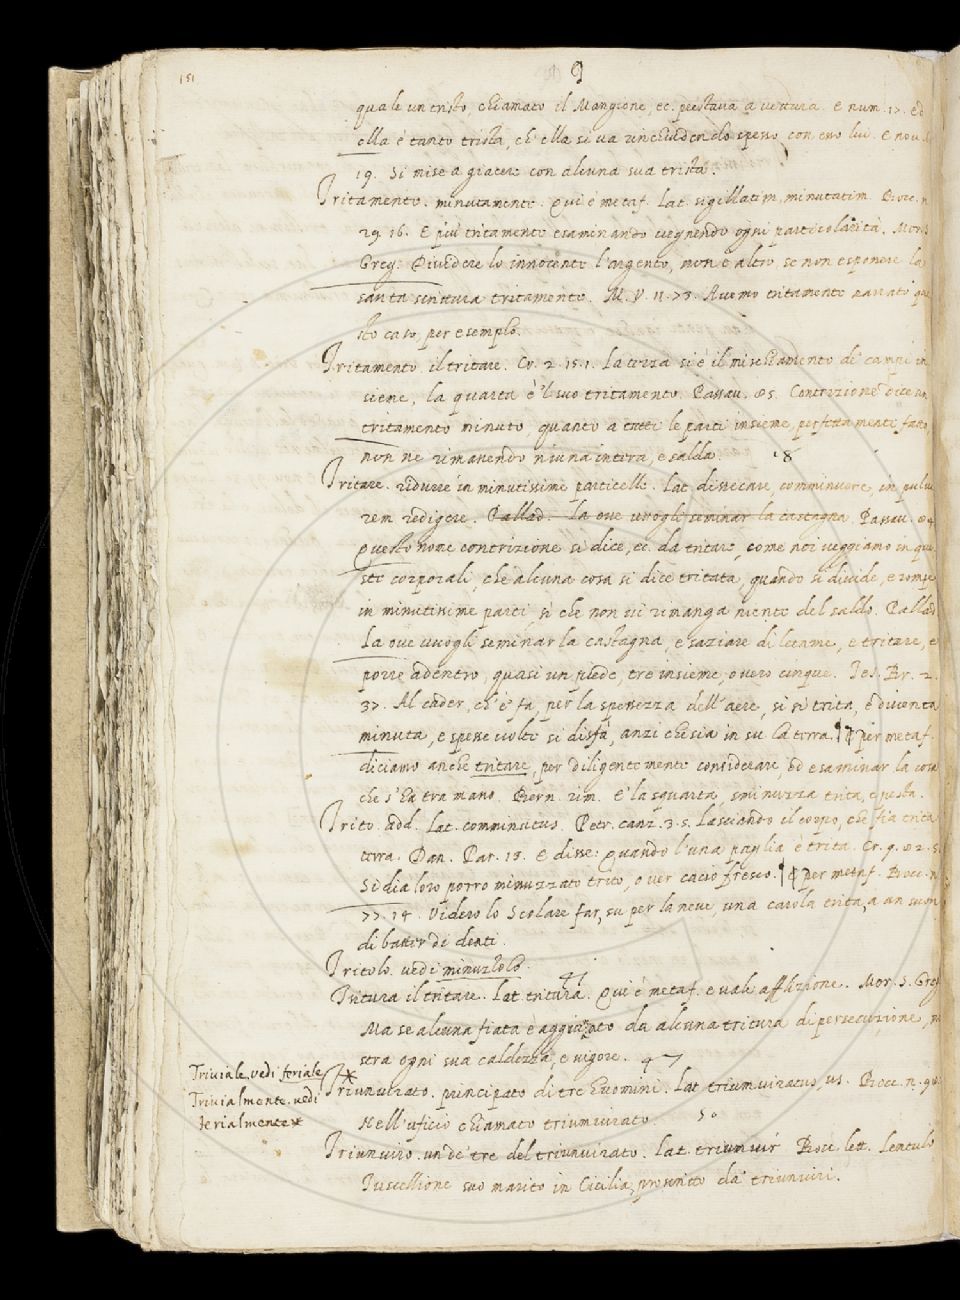 151
9
quale un tristo, chiamato il Mangione, ec. prestava a vettura. e num. 17. ed
ella è tanto trista, ch' ella si va rinchiudendo spesso con esso lui. e nov.
19. Si mise a giacere con alcuna sua trista.
Tritamento. minutamente. Qui è metaf. Lat. sigillatim, minutatim. Bocc. n
29. 16. E più tritamento esaminando vegnendo ogni particolarità. Mor. S
Greg. Dividere lo innocente l'argento, non è altro, se non esponere la
santa scrittura tritamente. M. V. 11. 73. Avemo tritamente narrato que
sto caso, per esemplo.
Tritamento il tritare. Cr. 2. 15. 1. La terza si è il mischiamento di campi in
sieme, la quarta è 'l suo tritamento. Passav. 85. Contrizione dice un
tritamento minuto, quanto a tutti le parti insieme, perfettamente fatto,
non ne rimanendo niuna intera, e salda. 18
Tritare. ridurre in minutissime particelle. Lat. dissecare, comminuere, in pulve
rem redigere. Pallad. La ove vuogli seminar la castagna. Passav. 84
Questo nome contrizione si dice, ec. da tritare, come noi veggiamo in que
ste corporali, che alcuna cosa si dice tritata, quando si divide, e rompe
in minutissime parti, sì che non vi rimanga niente del saldo. Pallad
La ove vuogli seminar la castagna, e saziare di letame, e tritare, e
porre adentro, quasi un piede, tre insieme, overo cinque. Tes. Br. 2.
37. Al cader, ch' è fa, per la spessezza dell' aere, si si trita, e diventa
minuta, e spesse volte si disfà, anzi che sia in su la terra. ¶ per metaf.
diciamo anche tritare, per diligentemente considerare, ed esaminar la cosa
che s' ha tra mano. Bern. rim. E la squarta, sminuzza trita, e pesta.
Trito. add. Lat. comminutus. Petr. canz. 3. 5. Lasciando il corpo, che fia trita
terra. Dan. Par. 13. E disse: Quando l'una paglia è trita. Cr. 9. 82. 5
Si dia loro porro minuzzato trito, o ver cacio fresco. ¶ per metaf. Bocc. n
77. 14. Videro lo Scolare far, su per la neve, una carola trita, a un suon
di batter di denti.
Tritolo. vedi minuzzolo.
41
Tritura il tritare. Lat. tritura. Qui è metaf. e vale afflizione. Mor. S. Greg
Ma se alcuna fiata è aggiuzato da alcuna tritura di persecuzione, mo
stra ogni sua caldezza, e vigore. 47
Triviale, vedi feriale
Trivialmente. vedi
ferialmente
Triunvirato. principato di tre huomini. Lat. triumviratus, us. Bocc. n. 98
Nell' uficio chiamato triumvirato. 50
Triunviro. un de' tre del triunvirato. Lat. triumvir Bocc. lett. Lentulo
Tuscellione suo marito in Cicilia, proscritto da' triunviri.